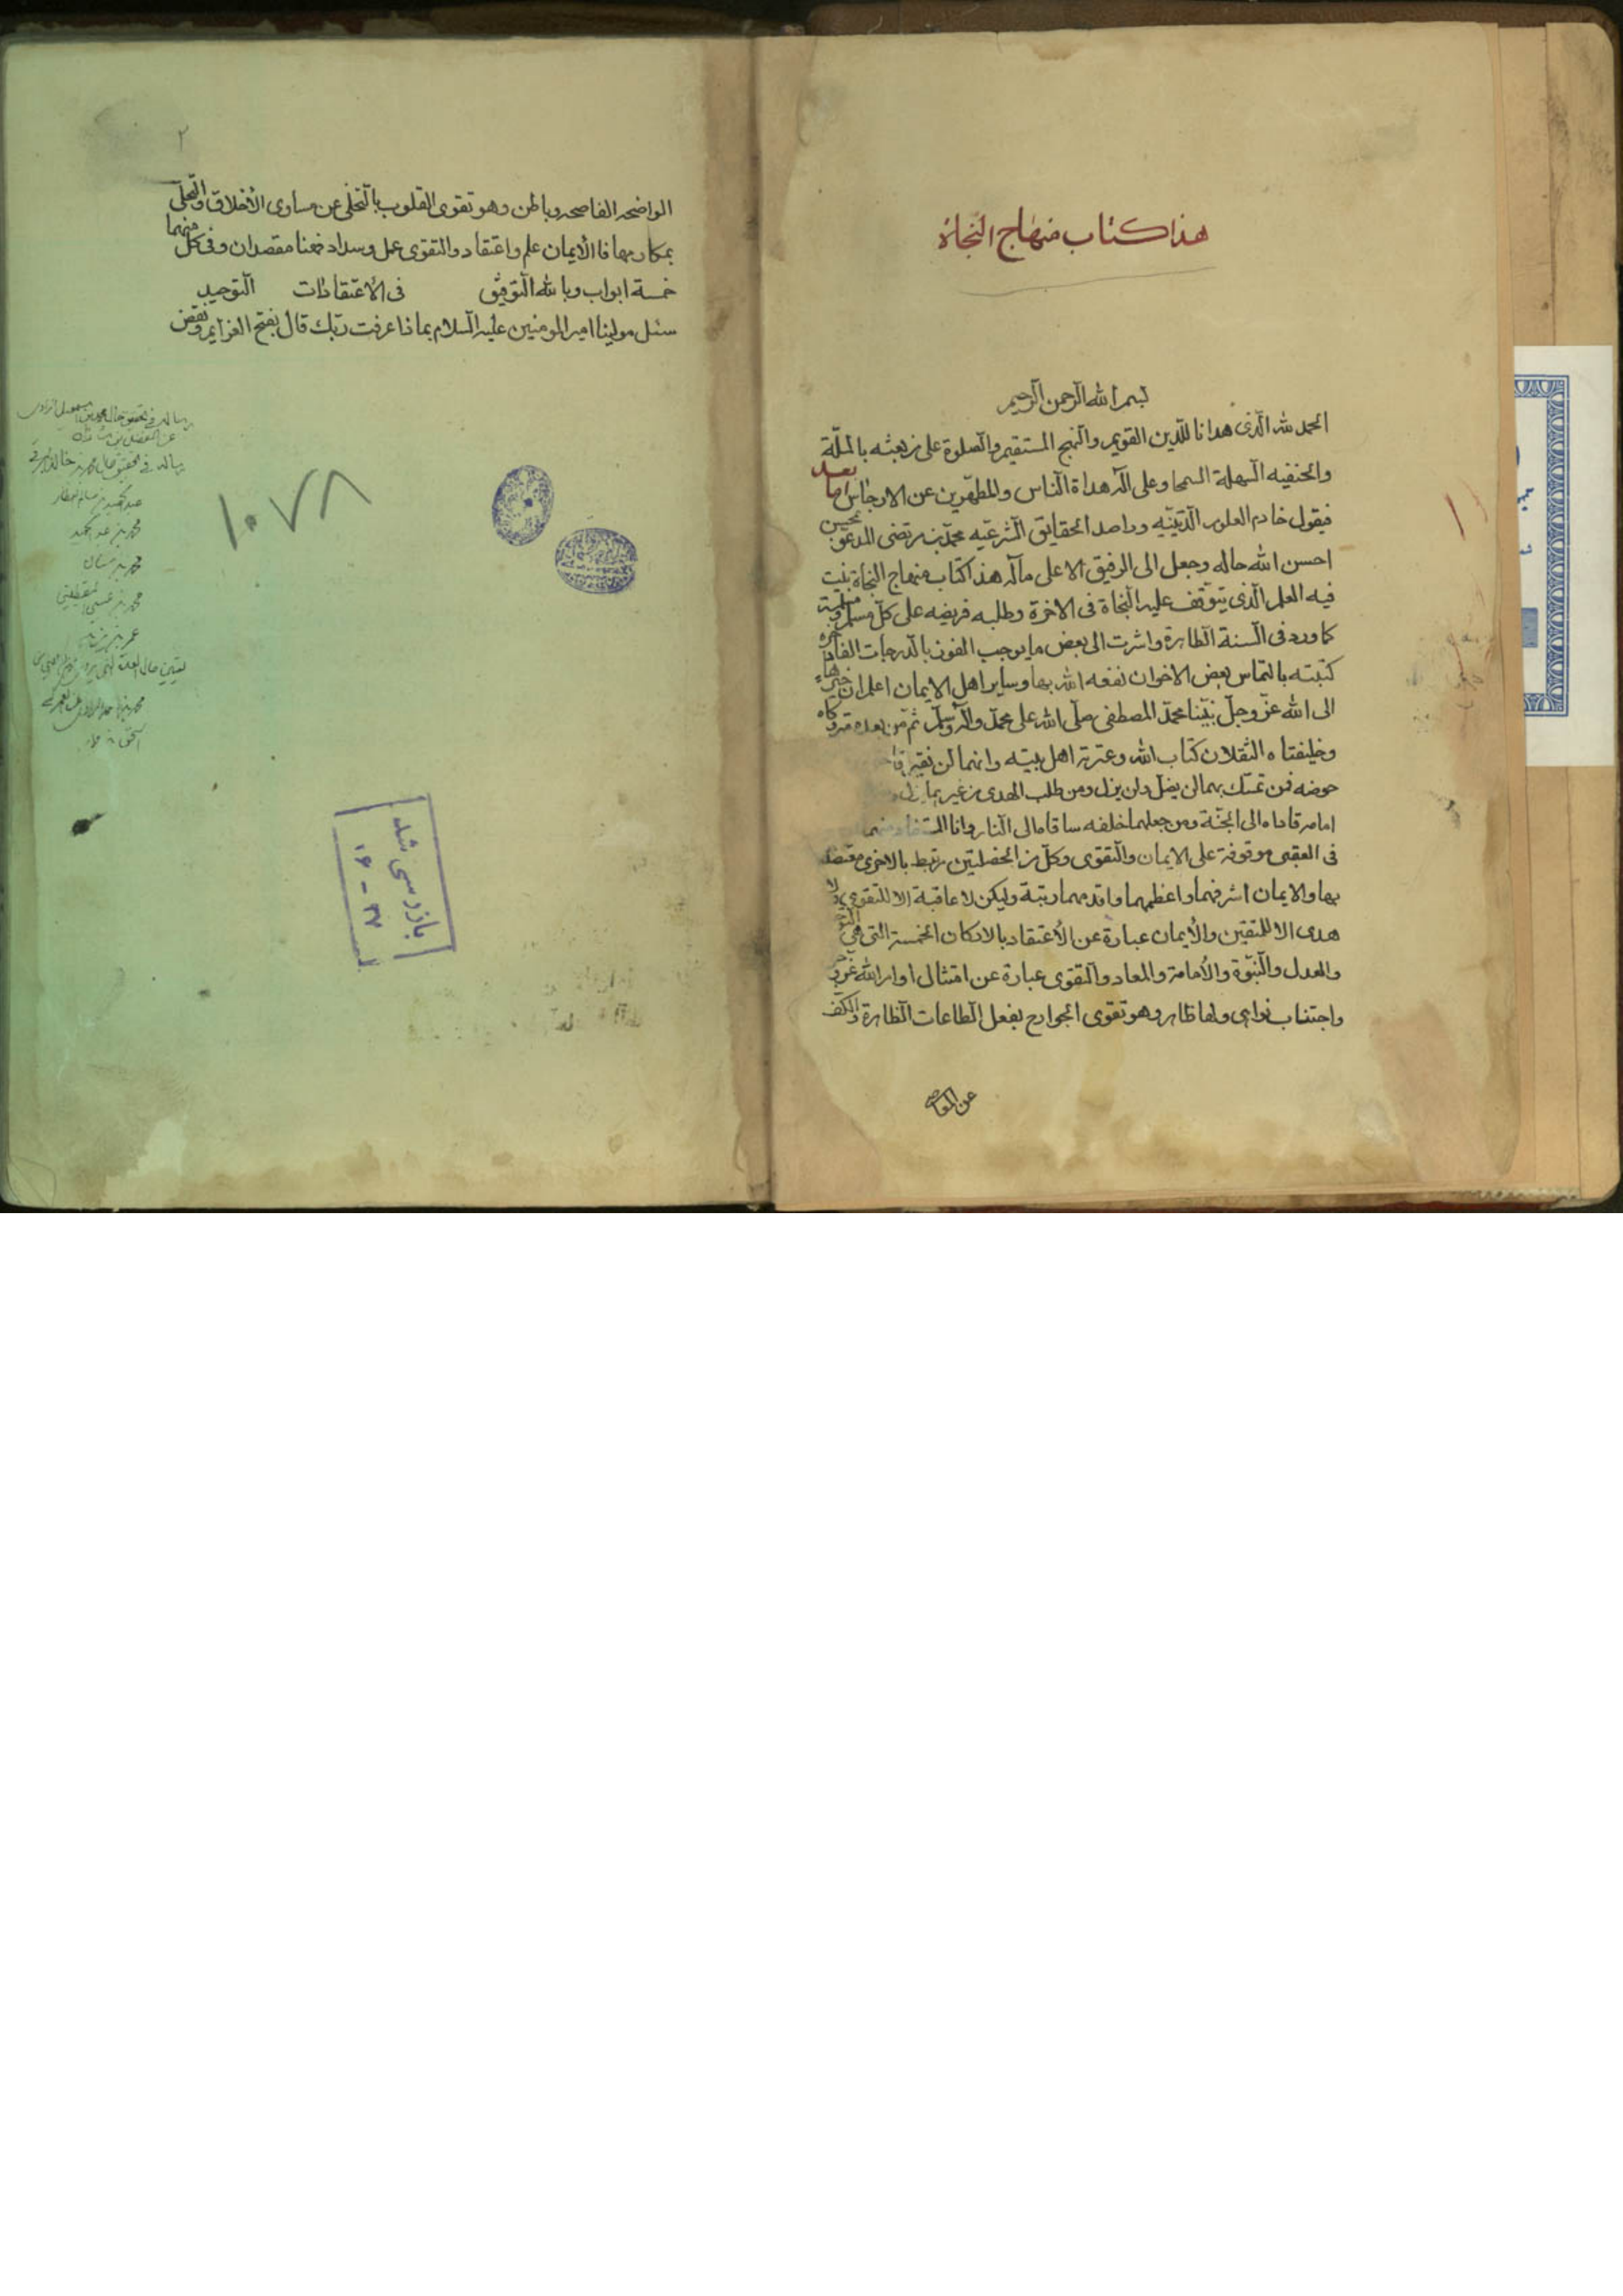 هذا كتاب منهاج النجاة
بسم الله الرحمن الرحيم
الحمد لله الّذى هدانا للدّين القويم والنهج المستقيم والصلوة على من بعثه بالملّة
والحنفيه السهلة السمحا وعلى آله هداة الناس والمطهّرين عن الارجاس اما بعد
فيقول خادم العلوم الدّينيّه وراصد الحقايق الشرعيّه محمّد بن مرتضى المدعوّ بمحسن
احسن الله حاله وجعل الى الرفيق الاعلى مآله هذا كتاب منهاج النجاة بينت
فيه العلم الّذى يتوقف عليه النجاة فى الاخرة وطلبه فريضه على كلّ مسلم ومسلمة
كما ورد فى السنة الطاهرة واشرت الى بعض ما يوجب الفوز بالدرجات الفاخرة
كتبته بالتماس بعض الاخوان نفعه الله بها وساير اهل الايمان اعلم ان
الى الله عزّ وجلّ نبيّنا محمّد المصطفى صلّى الله على محمّد وآله وسلّم ثم من بعده
وخليفتاه الثقلان كتاب الله وعترته اهل بيته وانهما لن
حوضه فمن تمسّك بهما لن يضلّ ولن يزل ومن طلب الهدى من غيرهما
امامه قاداه الى الجنّة ومن جعلهما خلفه ساقاه الى النار وانا
فى العقبى موقوفة على الايمان والتقوى وكلّ من الخصلتين مرتبط بالاخرى معتضد
بها والايمان اشرفهما واعظمهما واقدمهما رتبة وليكن لا عاقبة الا للتقوى ولا
هدى الا للمتقين والأيمان عبارة عن الأعتقاد بالاركان الخمسة التى هى التوحيد
والعدل والنبوّة والأمامة والمعاد والتقوى عبارة عن امتثال اوامر الله عزّ وجل
واجتناب نواهيه ولها ظاهر وهو تقوى الجوارح بفعل الطاعات الظاهرة والكفّ
عن المعاصى
٢
الواضحه الفاضحه وباطن وهو تقوى القلوب بالتخلى عن مساوى الأخلاق والتحلّى
بمكارمها فالأيمان علم واعتقاد والتقوى عمل وسداد فهنا مقصدان وفى كل منهما
خمسة ابواب وبالله التوفيق فى الأعتقادات التوحيد
سئل مولينا امير المومنين عليه السلام بماذا عرفت ربّك قال بفتح العزايم ونقض
عن الفضل بن شاذان
محمد بن سنان
١٠٧٨
بازرسى شد
١٦ - ٣٧